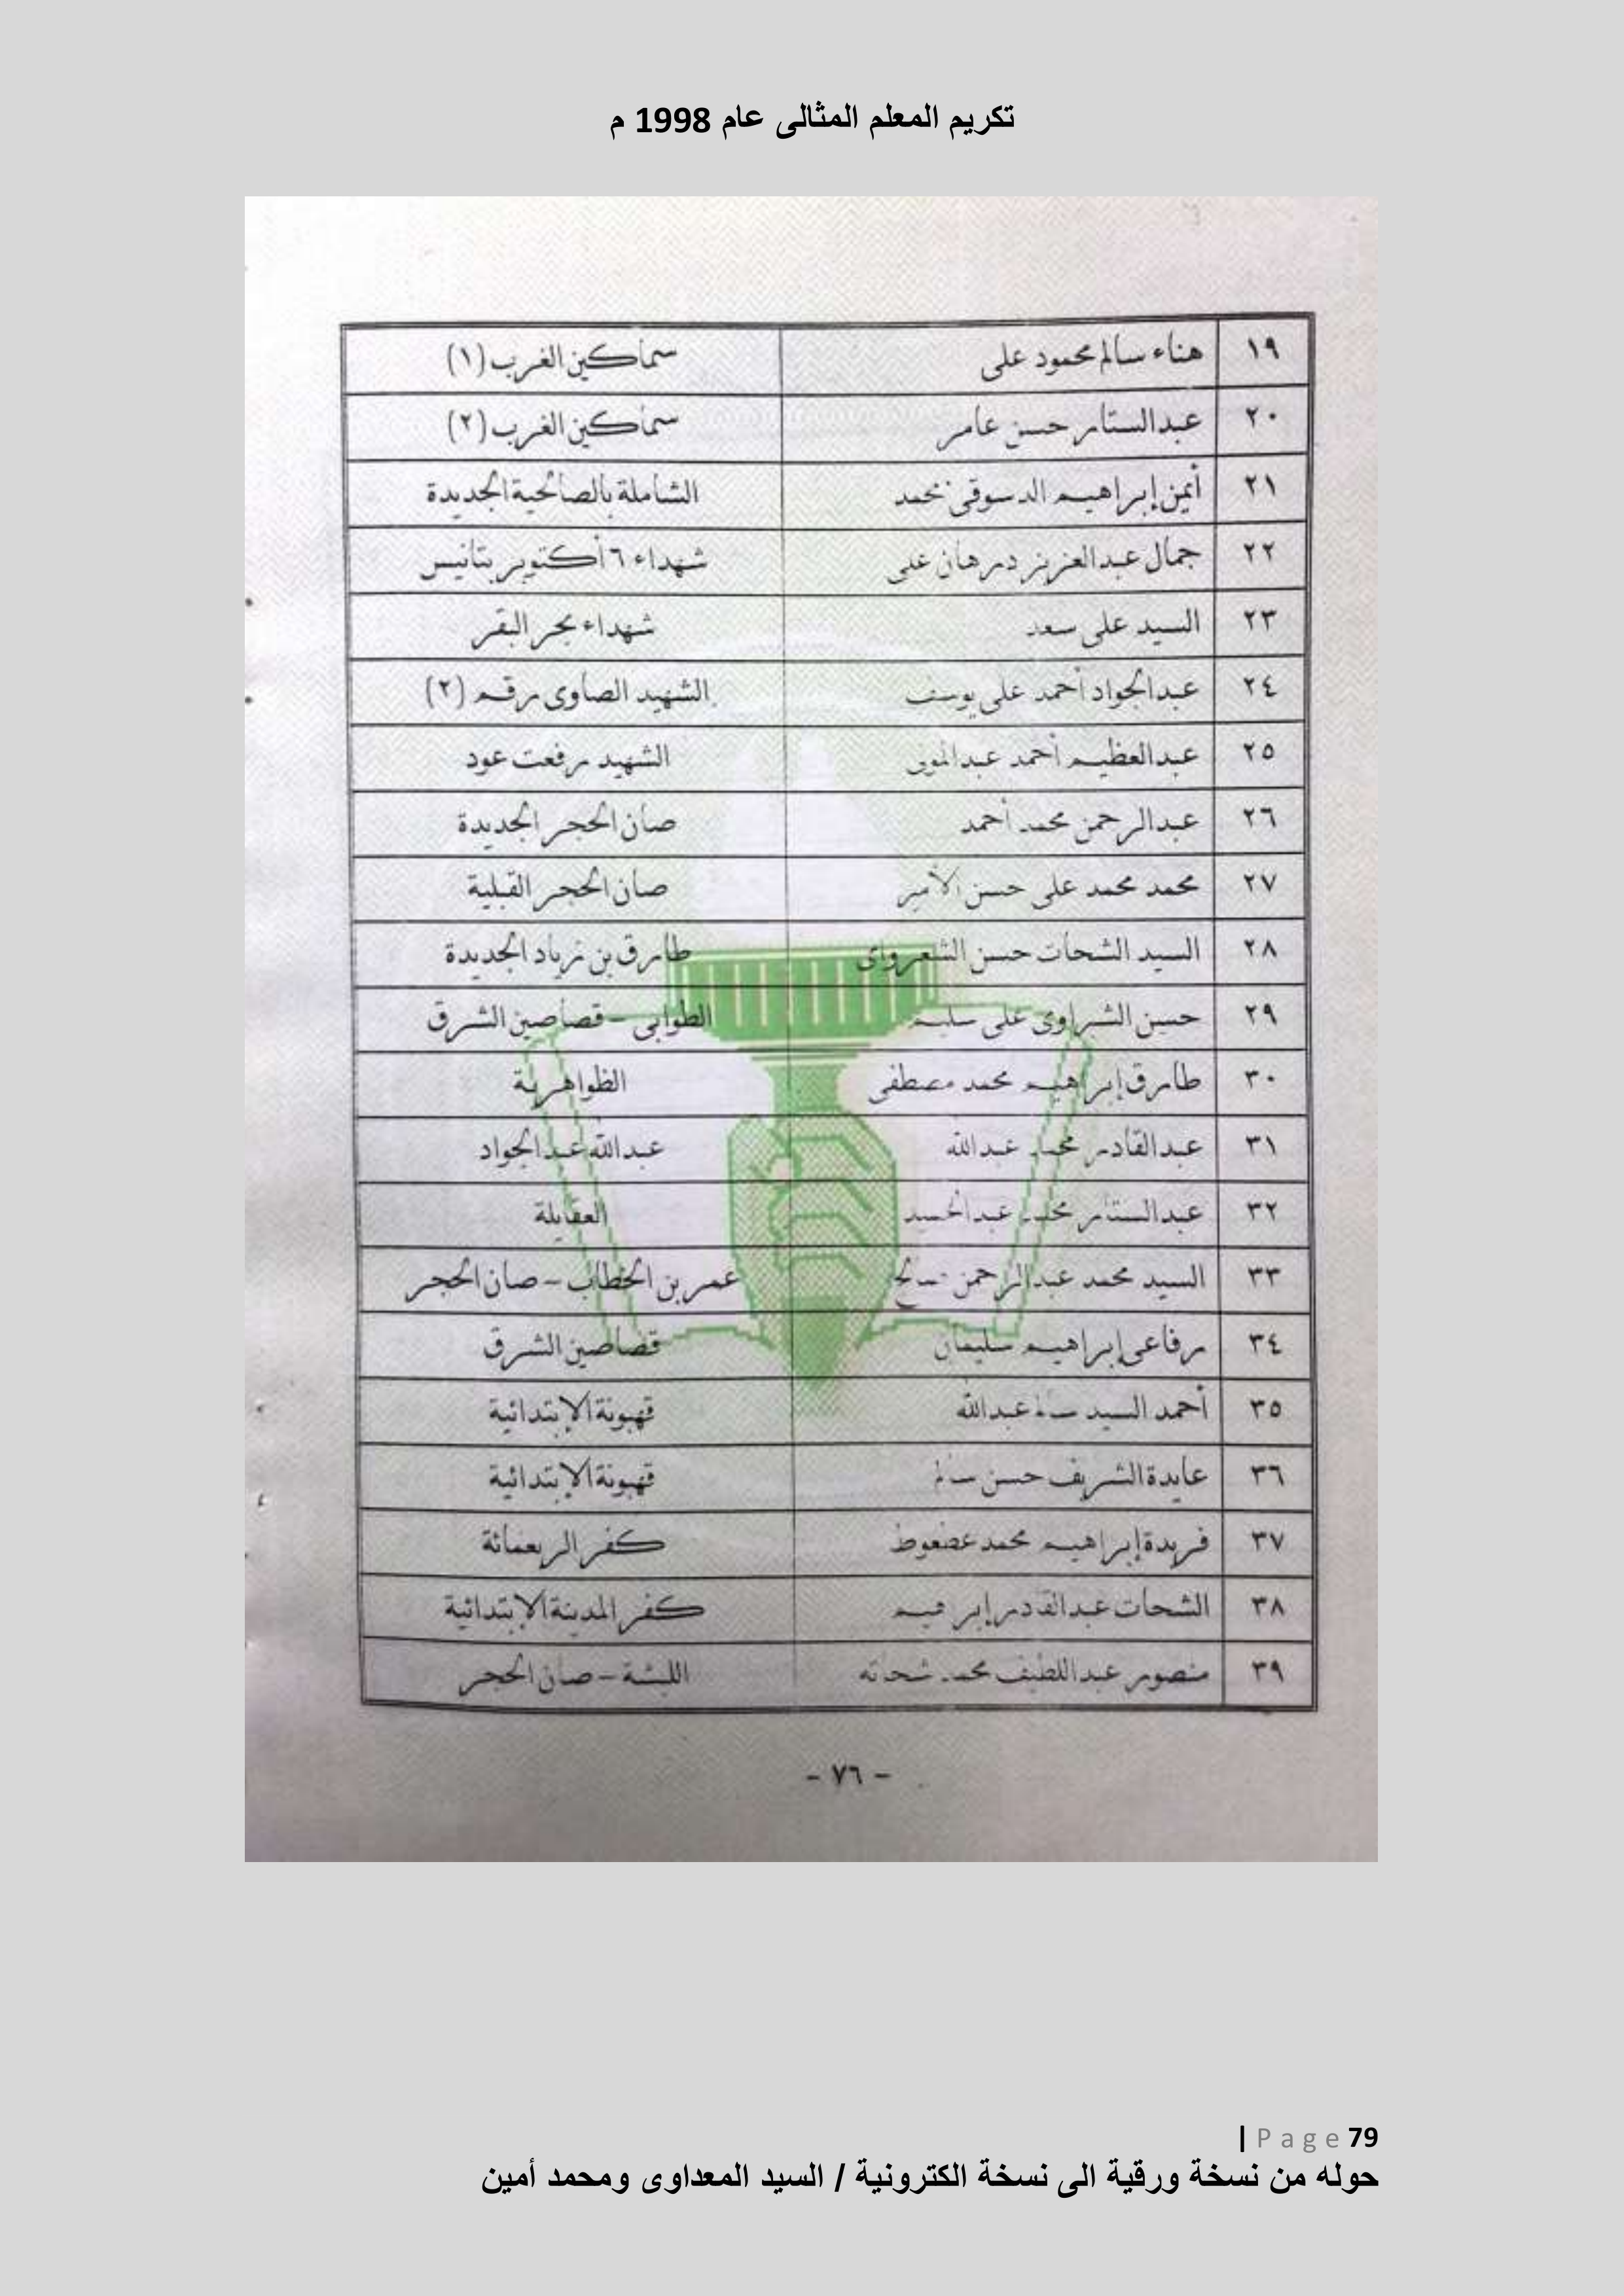 تكريم المعلم المثالى عام 1998 م
١٩ هناء سالم محمود على سماكين الغرب (١)
٢٠ عبدالستار حسن عامر سماكين الغرب (٢)
٢١ أيمن إبراهيم الدسوقى محمد الشاملة بالصالحية الجديدة
٢٢ جمال عبدالعزيز درهان على شهداء ٦ أكتوبر بتانيس
٢٣ السيد على سعد شهداء بحر البقر
٢٤ عبدالجواد أحمد على يوسف الشهيد الصاوى رقم (٢)
٢٥ عبدالعظيم أحمد الشهيد رفعت عود
٢٦ عبدالرحمن محمد أحمد صان الحجر الجديدة
٢٧ محمد محمد على حسن الأمير صان الحجر القبلية
٢٨ السيد الشحات حسن الشعرواى طارق بن زياد الجديدة
٢٩ حسين الشبراوى على سليم الطوابى - قصاصين الشرق
٣٠ طارق إبراهيم محمد مصطفى الظواهرية
٣١ عبدالقادر محمد عبدالله عبدالله عبدالجواد
٣٢ عبدالستار محمد العقايلة
٣٣ السيد محمد عبدالرحمن صالح عمر بن الخطاب - صان الحجر
٣٤ رفاعى إبراهيم سليمان قصاصين الشرق
٣٥ أحمد السيد سالم عبدالله قهبونة الإبتدائية
٣٦ عايدة الشريف حسن سالم قهبونة الإبتدائية
٣٧ فريدة إبراهيم محمد عضعوط كفر الربعمائة
٣٨ الشحات عبدالقادر إبراهيم كفر المدينة الإبتدائية
٣٩ منصور عبداللطيف محمد شحاته اللبشة - صان الحجر
- ٧٦ -
| Page 79
حوله من نسخة ورقية الى نسخة الكترونية / السيد المعداوى ومحمد أمين